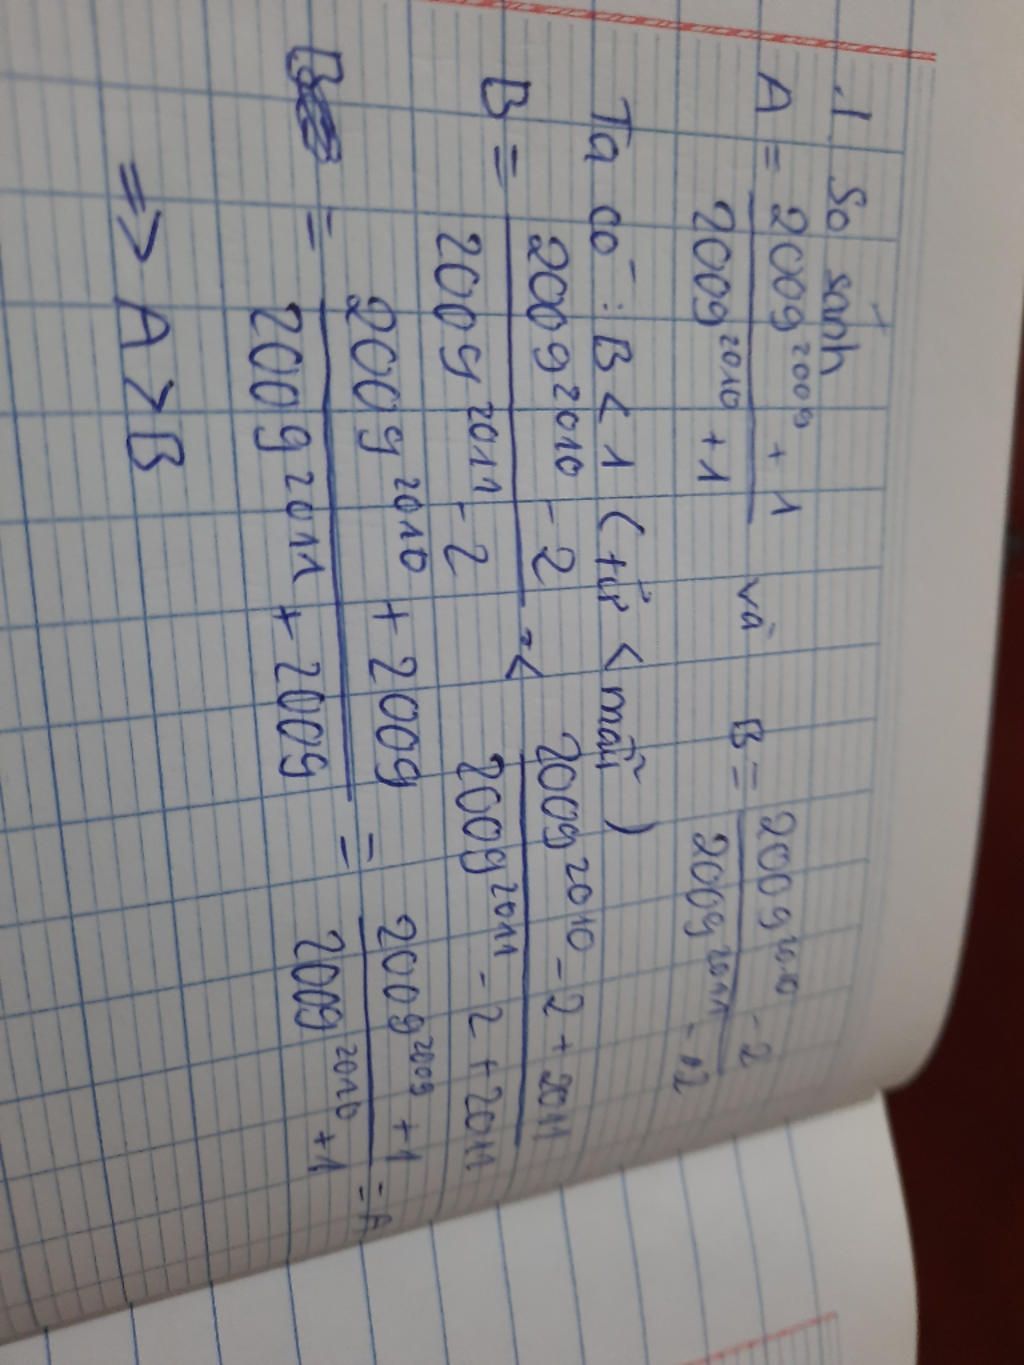 1. So sánh
A = (2009^2009 + 1)/(2009^2010 + 1) và B = (2009^2010 - 2)/(2009^2011 - 2)
Ta có : B < 1 ( tử < mẫu )
B = (2009^2010 - 2)/(2009^2011 - 2) < (2009^2010 - 2 + 2011)/(2009^2011 - 2 + 2011)
= (2009^2010 + 2009)/(2009^2011 + 2009) = (2009^2009 + 1)/(2009^2010 + 1) = A
=> A > B